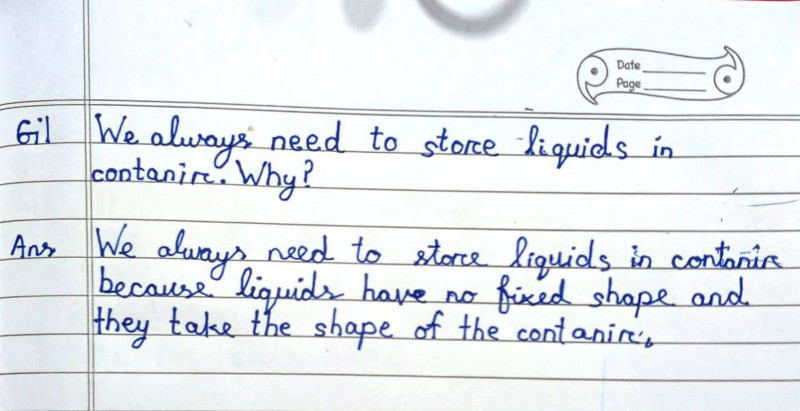 Date
Page
G.1 We always need to store liquids in
contanire. Why?
Ans We always need to store liquids in contanire
because liquids have no fixed shape and
they take the shape of the contanire.